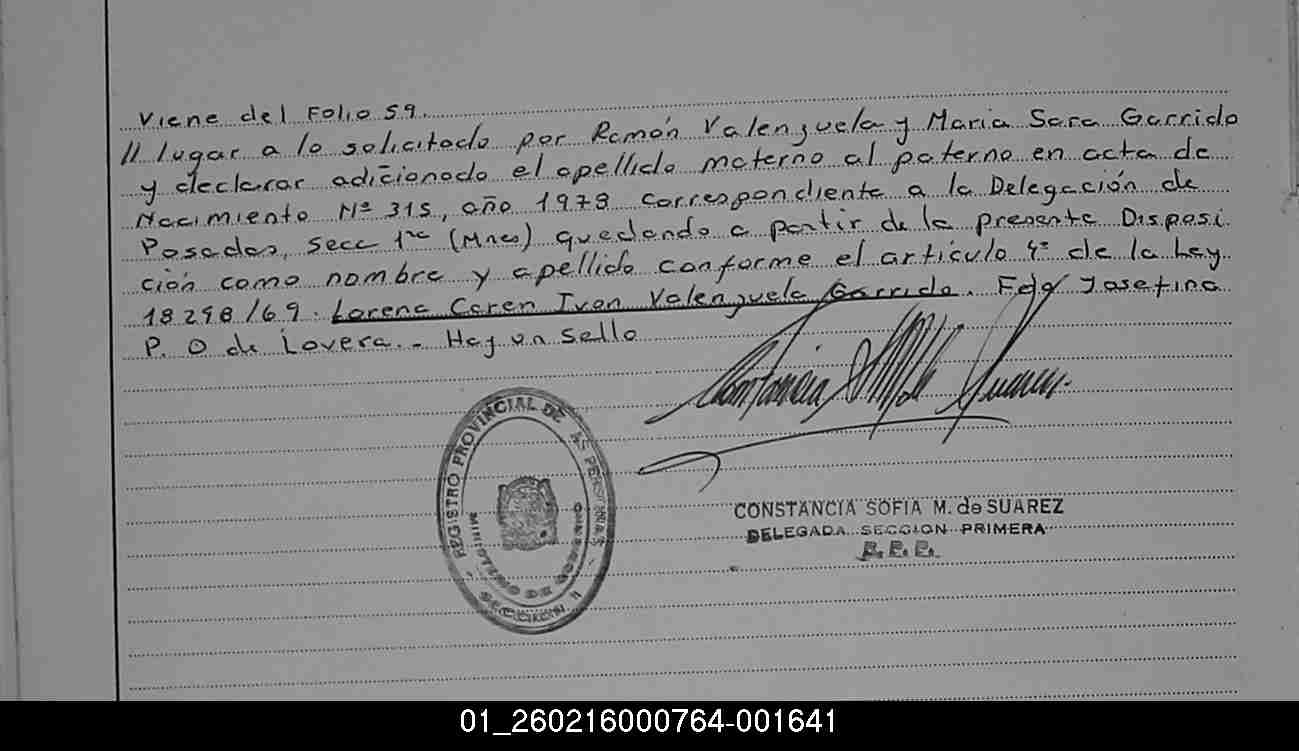 Viene del Folio 59.
// lugar a lo solicitado por Ramón Valenzuela y Maria Sara Garrido
y declarar adicionado el apellido materno al paterno en acta de
Nacimiento Nº 315, año 1978 correspondiente a la Delegación de
Posadas, Secc 1ra (Mnes) quedando a partir de la presente Disposi
ción como nombre y apellido conforme el artículo 4º de la Ley
18298/69. Lorena Caren Ivon Valenzuela Garrido. Fdo Josefina
P. O de Lovera.- Hay un sello
REGISTRO PROVINCIAL DE LAS PERSONAS
MINISTERIO DE GOBIERNO
SECCION
CONSTANCIA SOFIA M. de SUAREZ
DELEGADA SECCION PRIMERA
R.P.P.
01_260216000764-001641